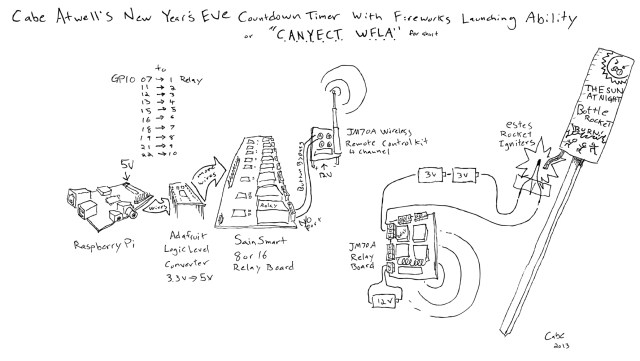 Cabe Atwell's New Year's Eve Countdown Timer With Fireworks Launching Ability
or "C.A.N.Y.E.C.T. W.F.L.A." for short
to
GPIO 07 → 1 Relay
11 → 2
12 → 3
13 → 4
15 → 5
16 → 6
18 → 7
19 → 8
21 → 9
22 → 10
5V
Raspberry Pi
wires
Adafruit
Logic Level
Converter
3.3V → 5V
more
wires
Relay
SainSmart
8 or 16
Relay Board
Button Bypass
JM70A Wireless
Remote Control Kit
4 channel
12V
3V
3V
JM70A
Relay
Board
12V
estes
Rocket
Igniters
THE SUN
AT NIGHT
Bottle
Rocket
Cabe
2013